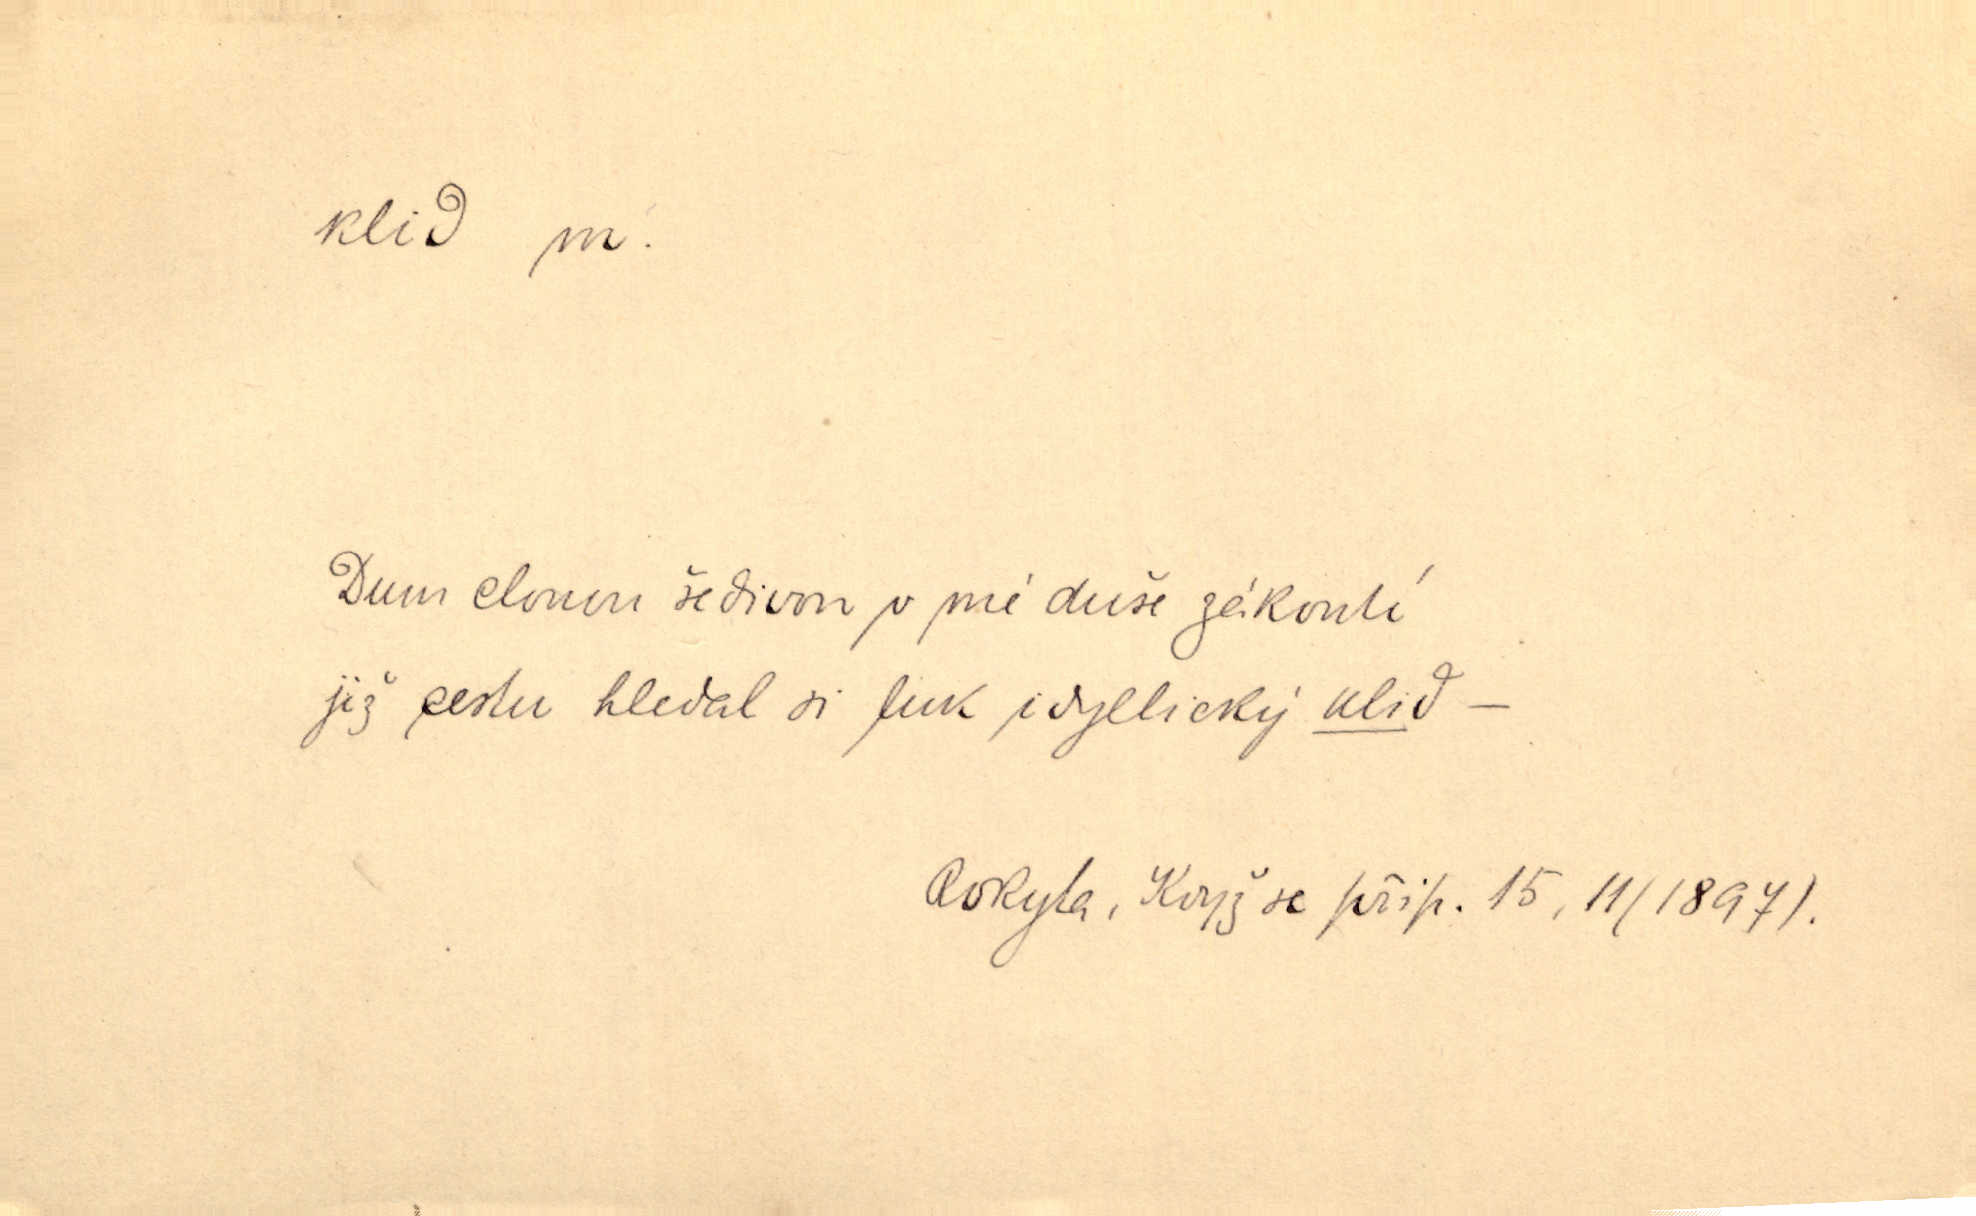 klid m.
Dum clonou šedivou v mé duše zákoutí
již cestu hledal si luk idyllický klid —
Rokyta, Když se přip. 15, 11 (1897).